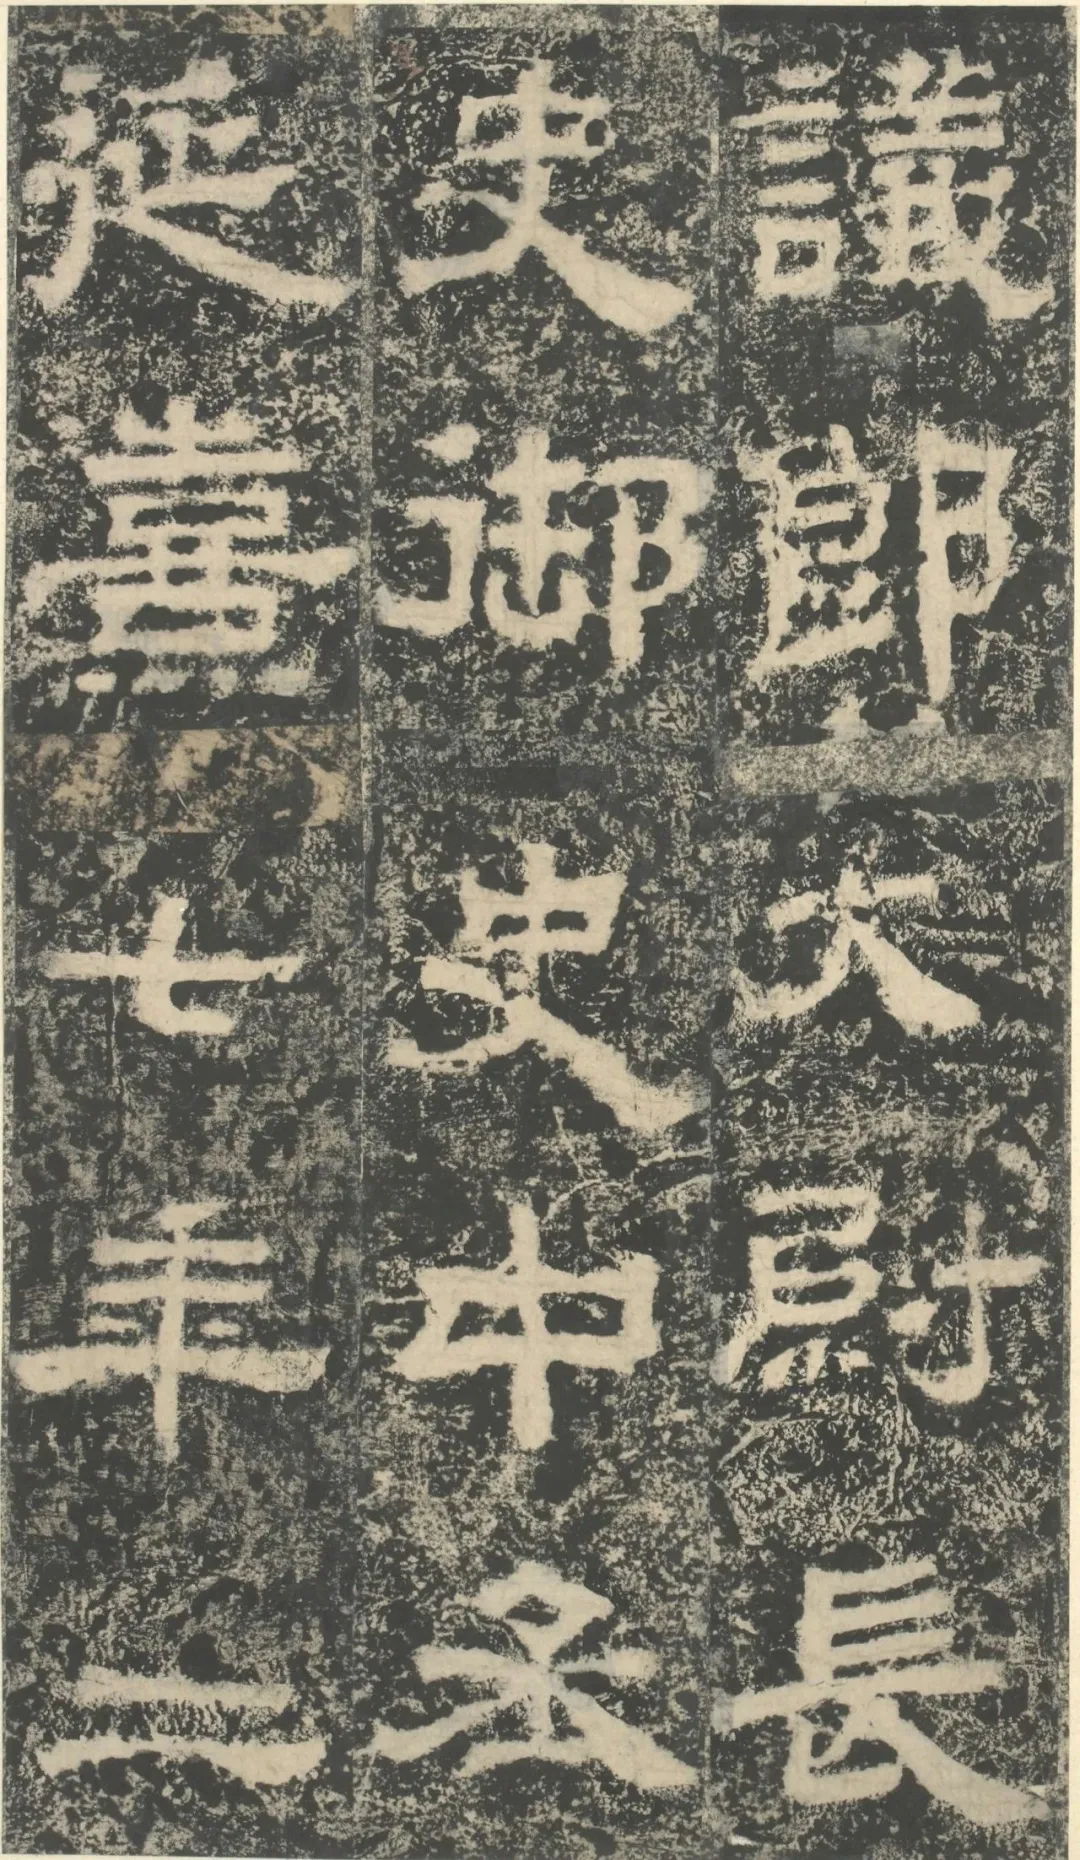 議郎大尉長
史御史中丞
延熹七年二